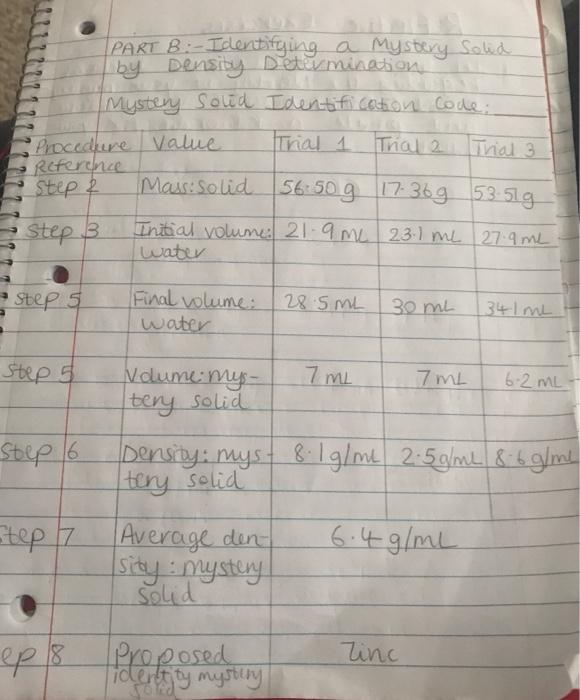 PART B:- Identifying a Mystery Solid
by Density Determination
Mystery Solid Identification Code:
Procedure Reference Value Trial 1 Trial 2 Trial 3
Step 2 Mass: solid 56.50 g 17.36g 53.51g
Step 3 Initial volume: 21.9 mL 23.1 mL 27.9 mL
water
Step 5 Final volume: 28.5 mL 30 mL 341 mL
water
Step 5 Volume: mys- 7 mL 7 mL 6.2 mL
tery solid
Step 6 Density: mys- 8.1g/mL 2.5g/mL 8.6g/mL
tery solid
tep 7 Average den- 6.4 g/mL
sity: mystery
solid
ep 8 Proposed Zinc
identity mystery
solid